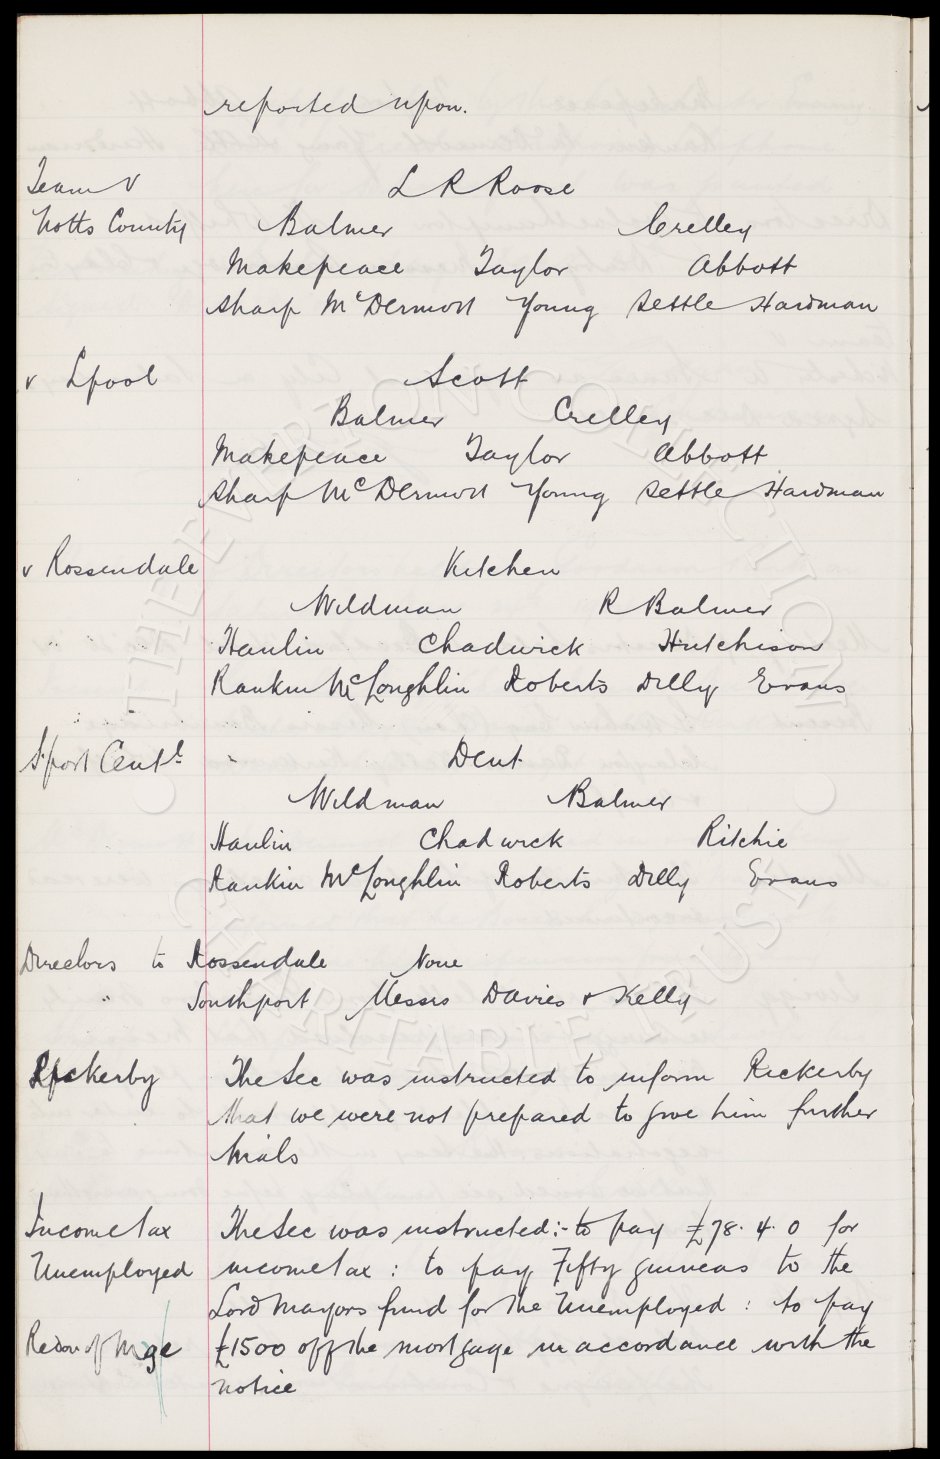 reported upon.
Team v L R Roose
Notts County Balmer Crelley
Makepeace Taylor Abbott
Sharp McDermott Young Settle Hardman
v Lpool Scott
Balmer Crelley
Makepeace Taylor Abbott
Sharp McDermott Young Settle Hardman
v Rossendale Kitchen
Wildman R Balmer
" " Hanlin Chadwick Hutchison
Rankin McLoughlin Roberts Dilly Evans
S'port Centl Dent
Wildman Balmer
Hanlin Chadwick Ritchie
Rankin McLoughlin Roberts Dilly Evans
Directors to Rossendale None
" Southport Messrs Davies & Kelly
Rickerby The Sec was instructed to inform Rickerby
that we were not prepared to give him further
trials
Income tax The Sec was instructed:- to pay £78. 4. 0 for
Unemployed income tax : to pay Fifty guineas to the
Lord Mayors fund for the Unemployed : to pay
Redon of Mge £1500 off the mortgage in accordance with the
notice
THE EVERTON COLLECTION
CHARITABLE TRUST